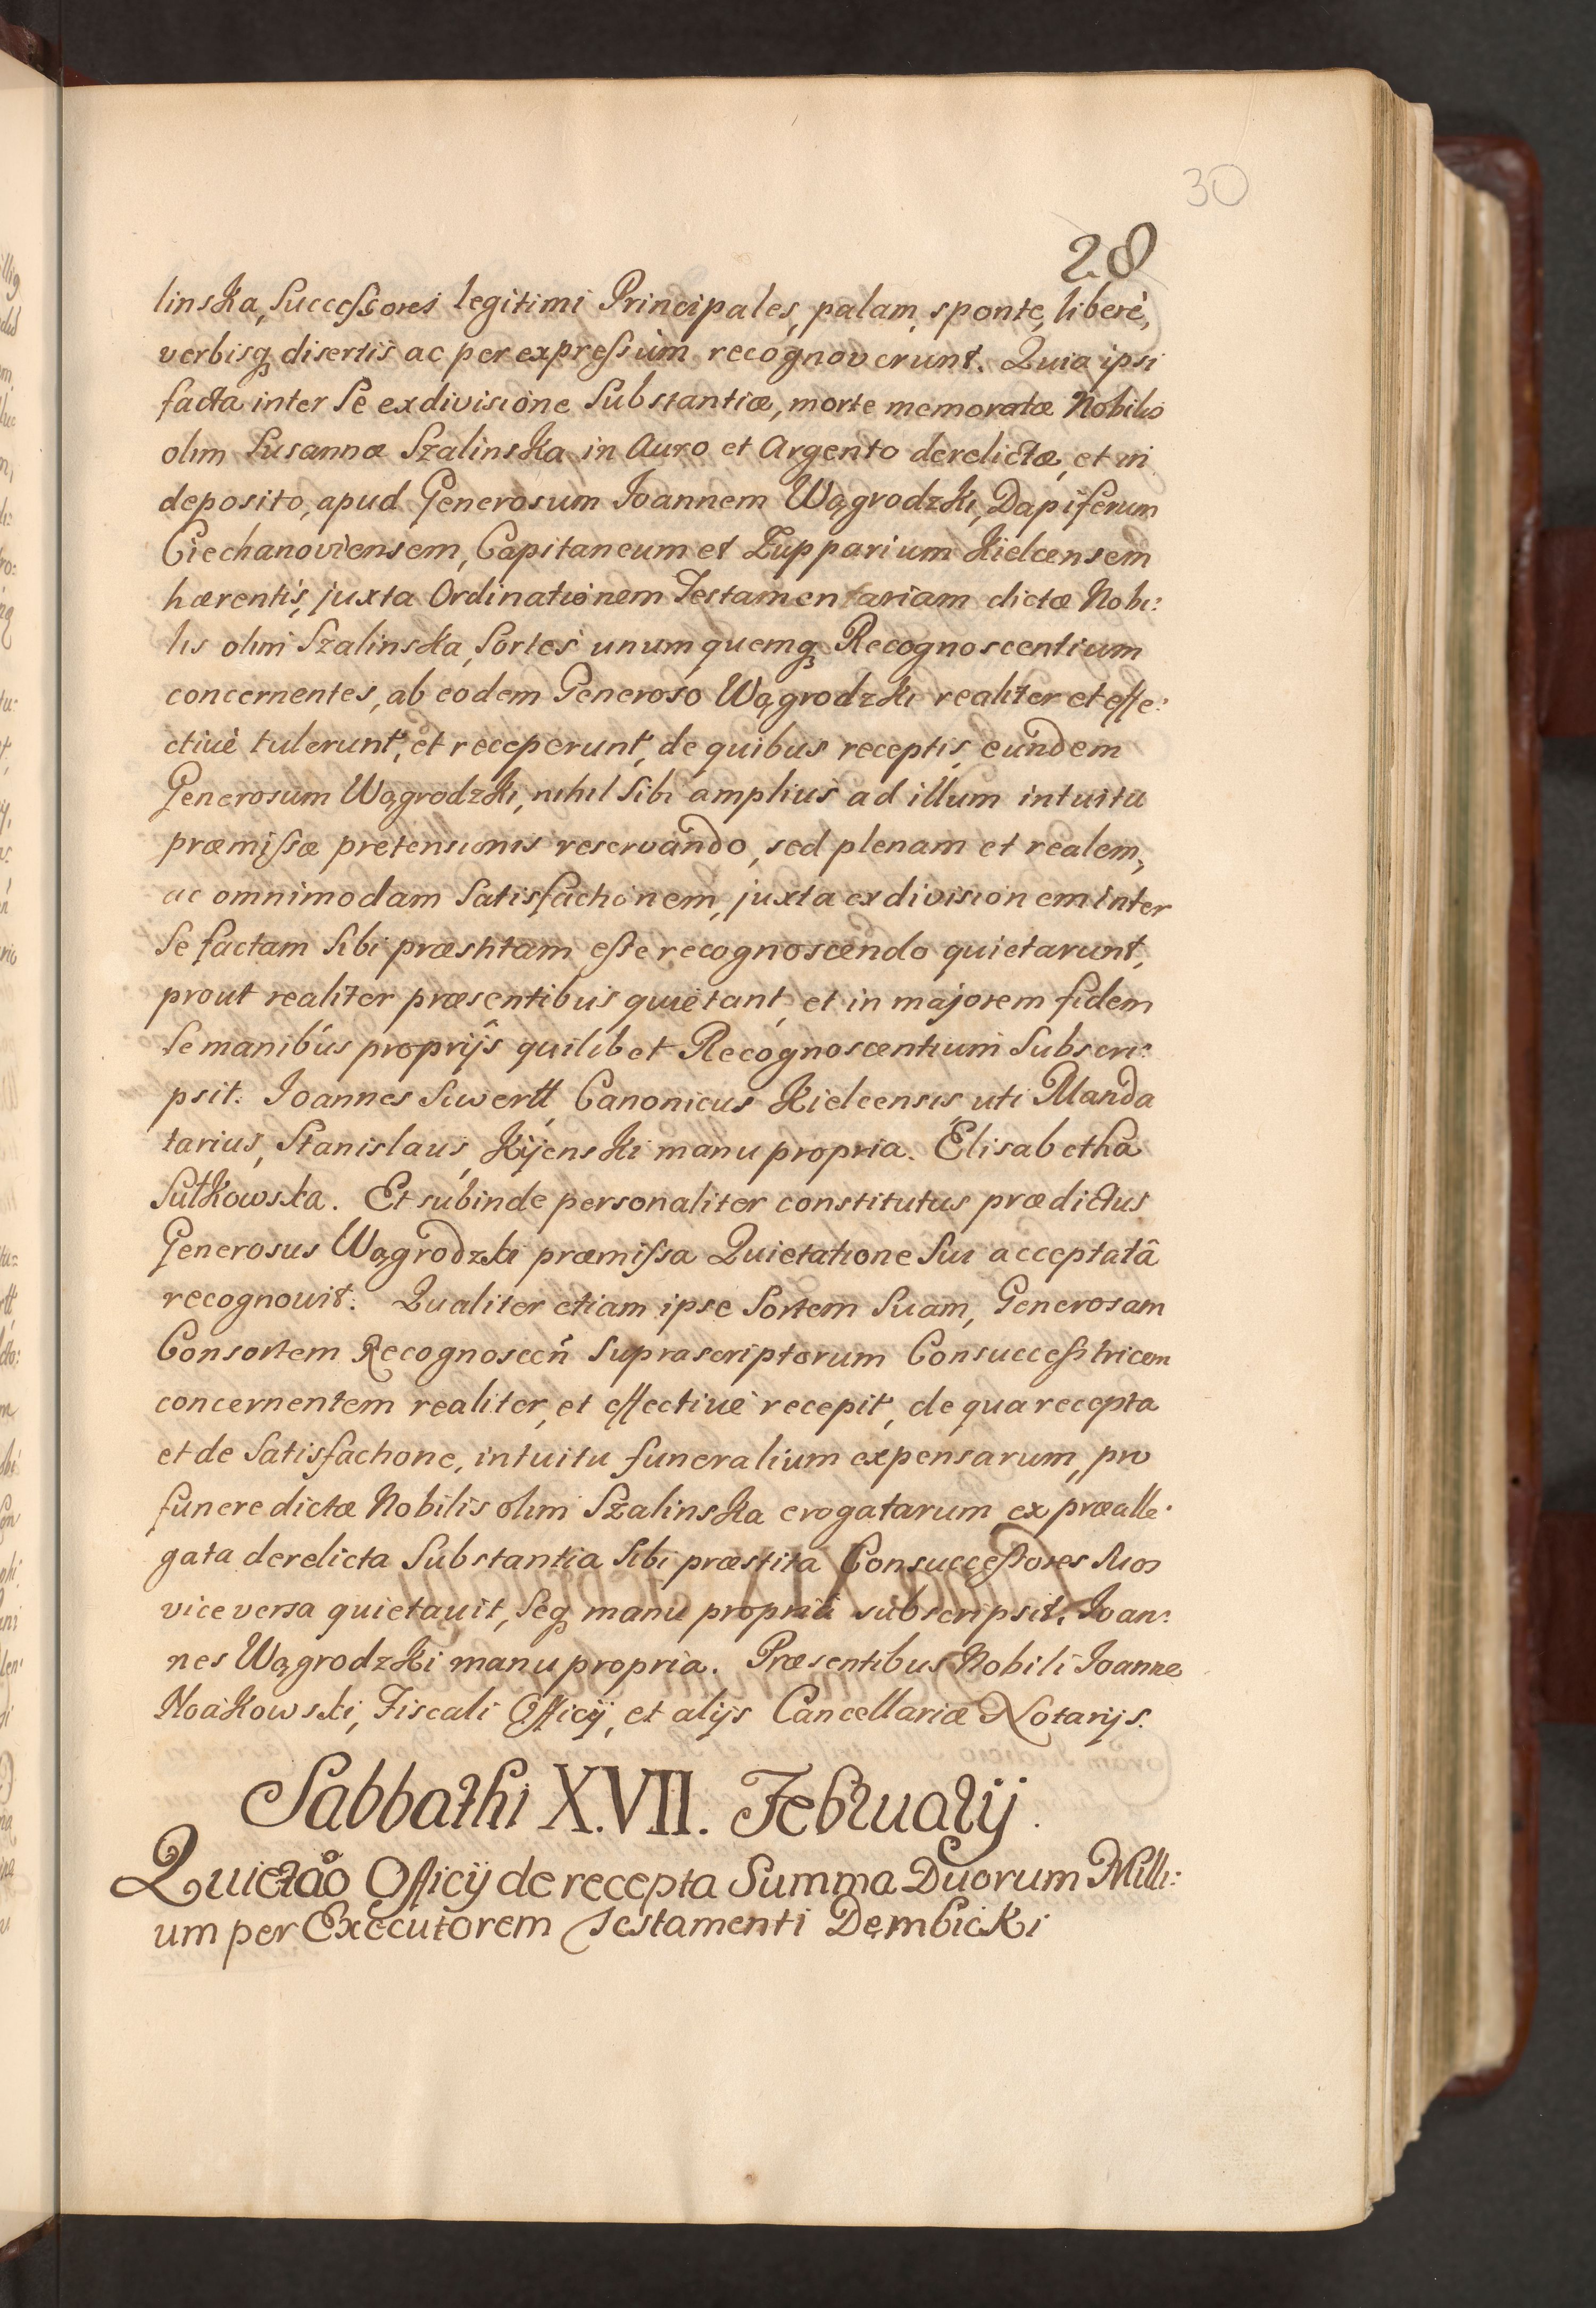 30
28
linska, Successores legitimi Principales, palam, sponte, liberè,
verbisq; disertis ac per expressum recognoverunt. Quia ipsi
facta inter Se exdivisione Substantiæ, morte memoratæ Nobilis
olim Susannæ Szalinska in Auro et Argento derelictæ, et in
deposito, apud Generosum Joannem Wągrodzki, Dapiferum
Ciechanoviensem, Capitaneum et Zupparium Kielcensem
hærentis, juxta Ordinationem Testamentariam dictæ Nobi:
lis olim Szalinska, Sortes unumquemq; Recognoscentium
concernentes, ab eodem Generoso Wągrodzki realiter et effe:
ctivè tulerunt, et receperunt, de quibus receptis, eundem
Generosum Wągrodzki, nihil Sibi amplius ad illum intuitu
præmissæ pretensionis reservando, sed plenam et realem,
ac omnimodam Satisfactionem, juxta exdivisionem inter
Se factam Sibi præstitam esse recognoscendo quietarunt,
prout realiter præsentibus quietant, et in majorem fidem
Se manibus proprijs quilibet Recognoscentium Subscri:
psit. Joannes Suwertt, Canonicus Kielcensis, uti Manda
tarius, Stanislaus Kijenski manu propria. Elisabetha
Sułkowska. Et subinde personaliter constitutus prædictus
Generosus Wągrodzki præmissa Quietatione Sui acceptatâ
recognovit. Qualiter etiam ipse Sortem Suam, Generosam
Consortem Recognoscen̄ Suprascriptorum Consuccessitricem
concernentem realiter, et effectivè recepit, de qua recepta
et de Satisfactione, intuitu funeralium expensarum, pro
funere dictæ Nobilis olim Szalinska erogatarum ex prealle:
gata derelicta Substantia Sibi præstita Consuccessores Suos
vice versa quietavit, Seq; manu propriâ subscripsit. Joan:
nes Wągrodzki manu propria. Præsentibus Nobili Joanne
Noakowski, Fiscali Officij, et alijs Cancellariæ Notarijs.
Sabbathi X.VII. Februarij.
Quietåo Officij de recepta Summa Duorum Milli:
um per Executorem Testamenti Dembicki